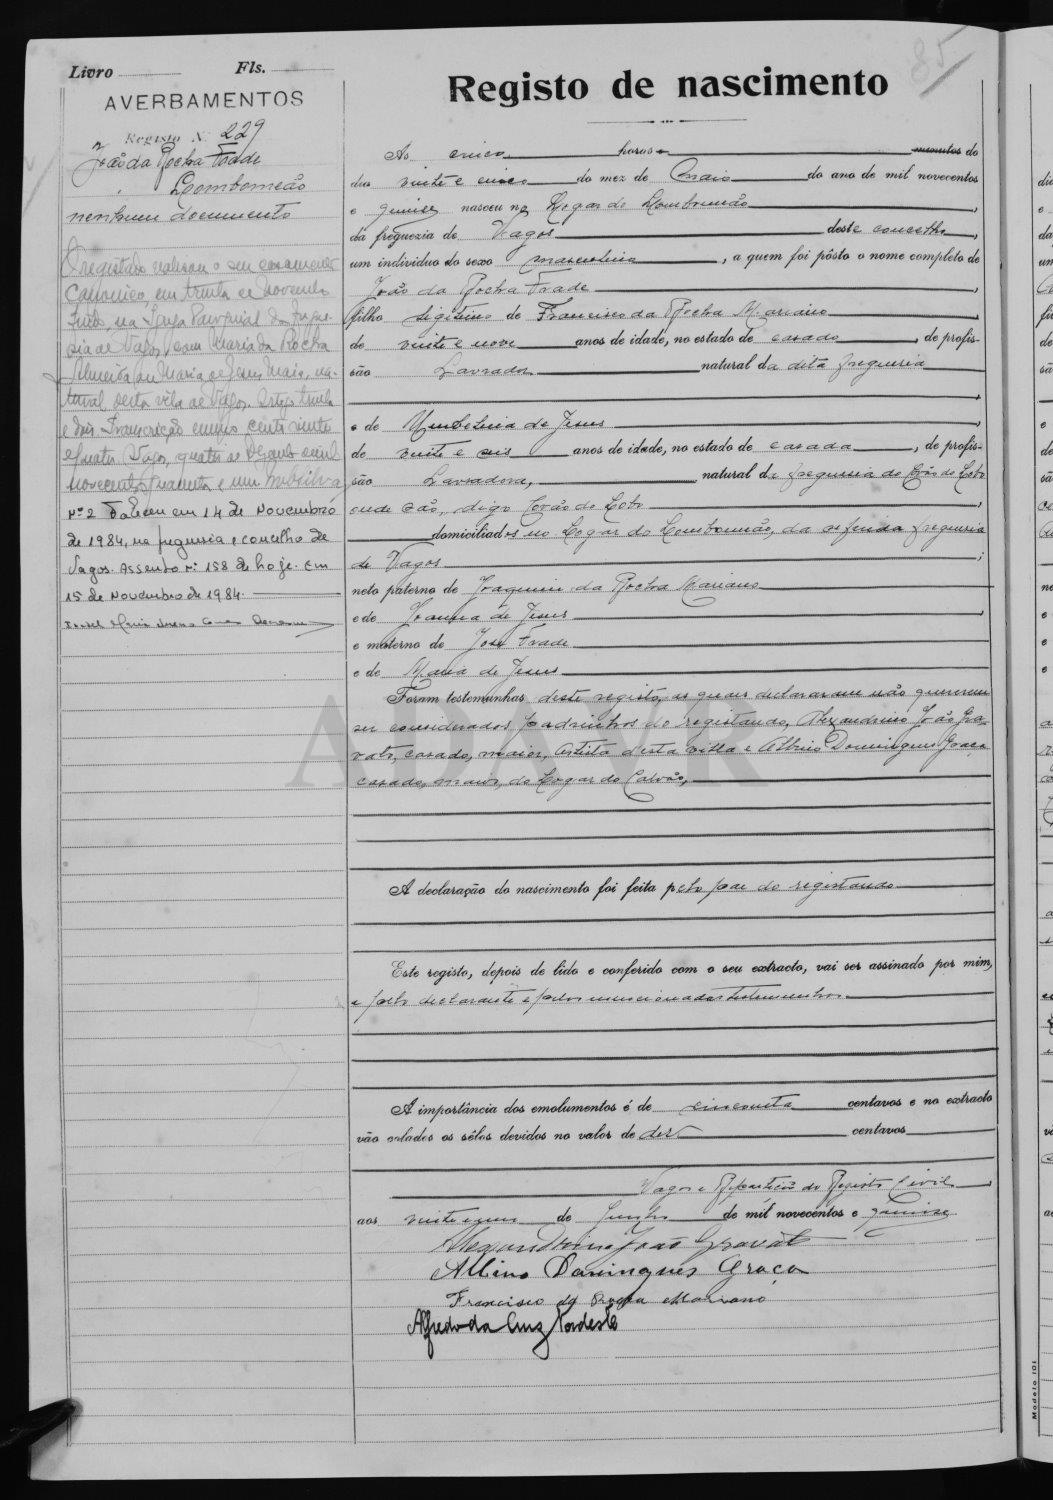 85
Livro Fls.
AVERBAMENTOS
Registo N.º 229
João da Rocha Frade
Lombomeão
nenhum documento
O registado realisou o seu casamento
Canonico, em trinta de Novembro
findo, na Igreja Paroquial da fregue-
sia de Vagos, com Maria da Rocha
Almeida ou Maria de Jesus Maio, na-
tural desta vila de Vagos. trinta
e dois Transcrição numero cento vinte
e quatro. Vagos, quatro de Dezembro de mil
novecentos quarenta e um
Nº 2 Faleceu em 14 de Novembro
de 1984, na freguesia e concelho de
Vagos. Assento nº 158 de hoje. Em
15 de Novembro de 1984.
Registo de nascimento
Ás cinco horas minutos do
dia vinte e cinco do mez de Maio do ano de mil novecentos
e quinze nasceu no Logar de Lombomeão
da freguezia de Vagos deste concelho,
um individuo do sexo masculino, a quem foi pôsto o nome completo de
João da Rocha Frade
filho legitimo de Francisco da Rocha Mariano
de vinte e nove anos de idade, no estado de casado, de profis-
são Lavrador natural da dita freguesia
e de Umbelina de Jesus
de vinte e seis anos de idade, no estado de casada, de profis-
são Lavradora, natural da freguesia do Covão do Lobo
onde são, digo Covão do Lobo
domiciliados no Logar do Lombomeão, da referida freguesia
de Vagos;
neto paterno de Joaquim da Rocha Mariano
e de Joanna de Jesus
e materno de José Frade
e de Maria de Jesus
Foram testemunhas deste registo, as quais declararam não quererem
ser considerados padrinhos do registando, Alexandrino João Gra-
vato, casado, maior, artista desta villa e Albino Domingues Graça
casado, maior, do Logar de Calvão,
A declaração do nascimento foi feita pelo pae do registando
Este registo, depois de lido e conferido com o seu extracto, vai ser assinado por mim,
e pelo declarante e pelas mencionadas testemunhas
A importância dos emolumentos é de cincoenta centavos e no extracto
vão colados os sêlos devidos no valor de dez centavos
Vagos e Repartição do Registo Civil,
aos vinte e um de Junho de mil novecentos e quinze
Alexandrino João Gravato
Albino Domingues Graça
Francisco da Rocha Mariano
Alfredo da Cruz Nordeste
Modelo 101